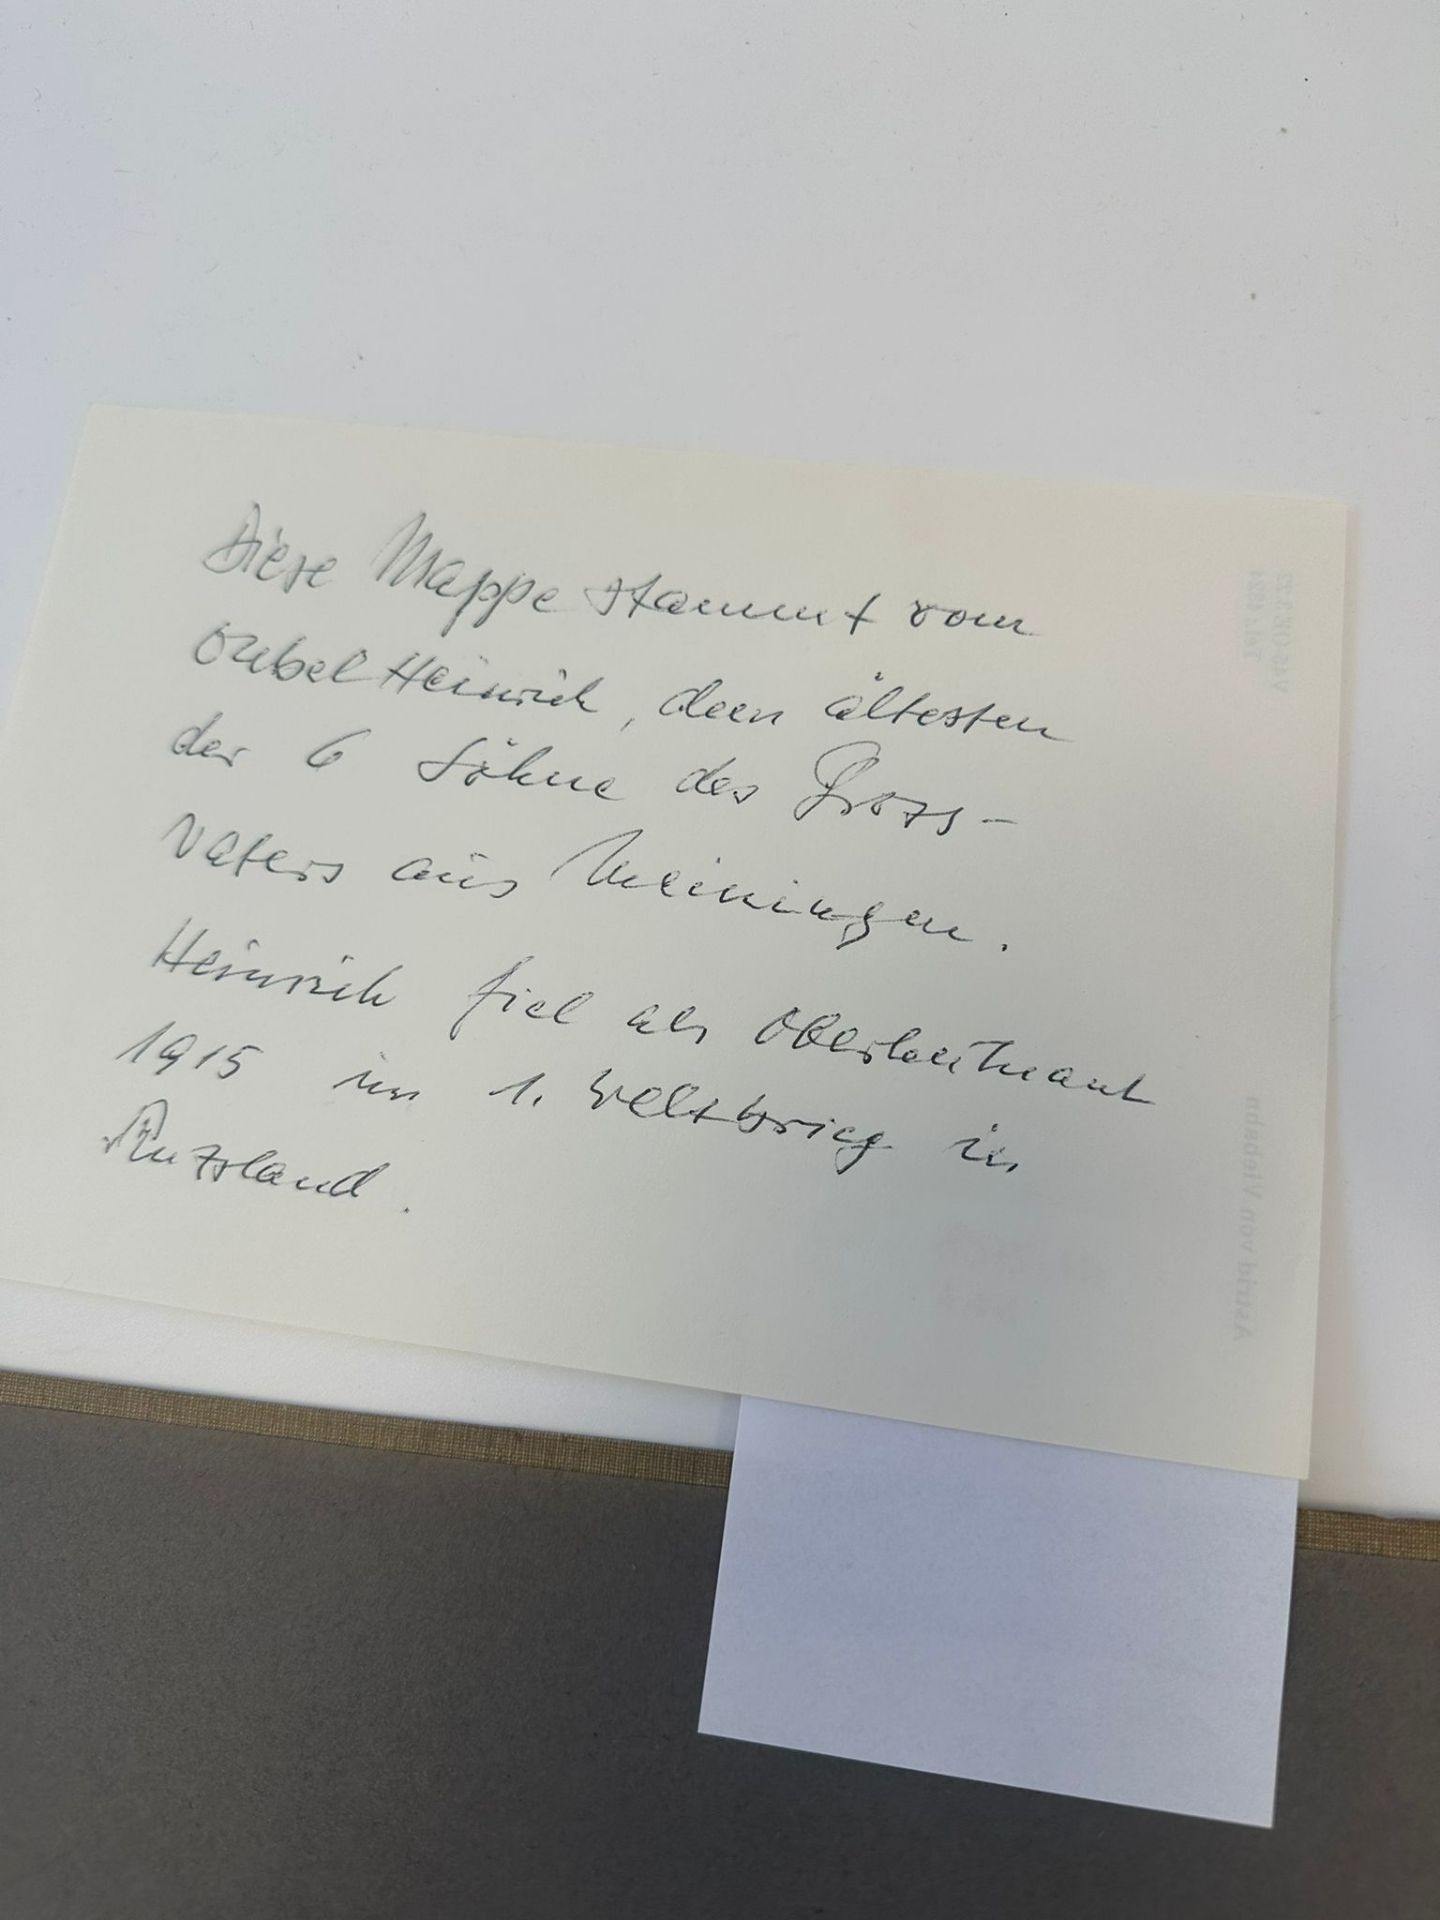 Diese Mappe stammt vom
Onkel Heinrich, dem ältesten
der 6 Söhne des Gross-
vaters aus Meiningen.
Heinrich fiel als Oberleutnant
1915 im 1. Weltkrieg in
Russland.
Astrid von Viebahn